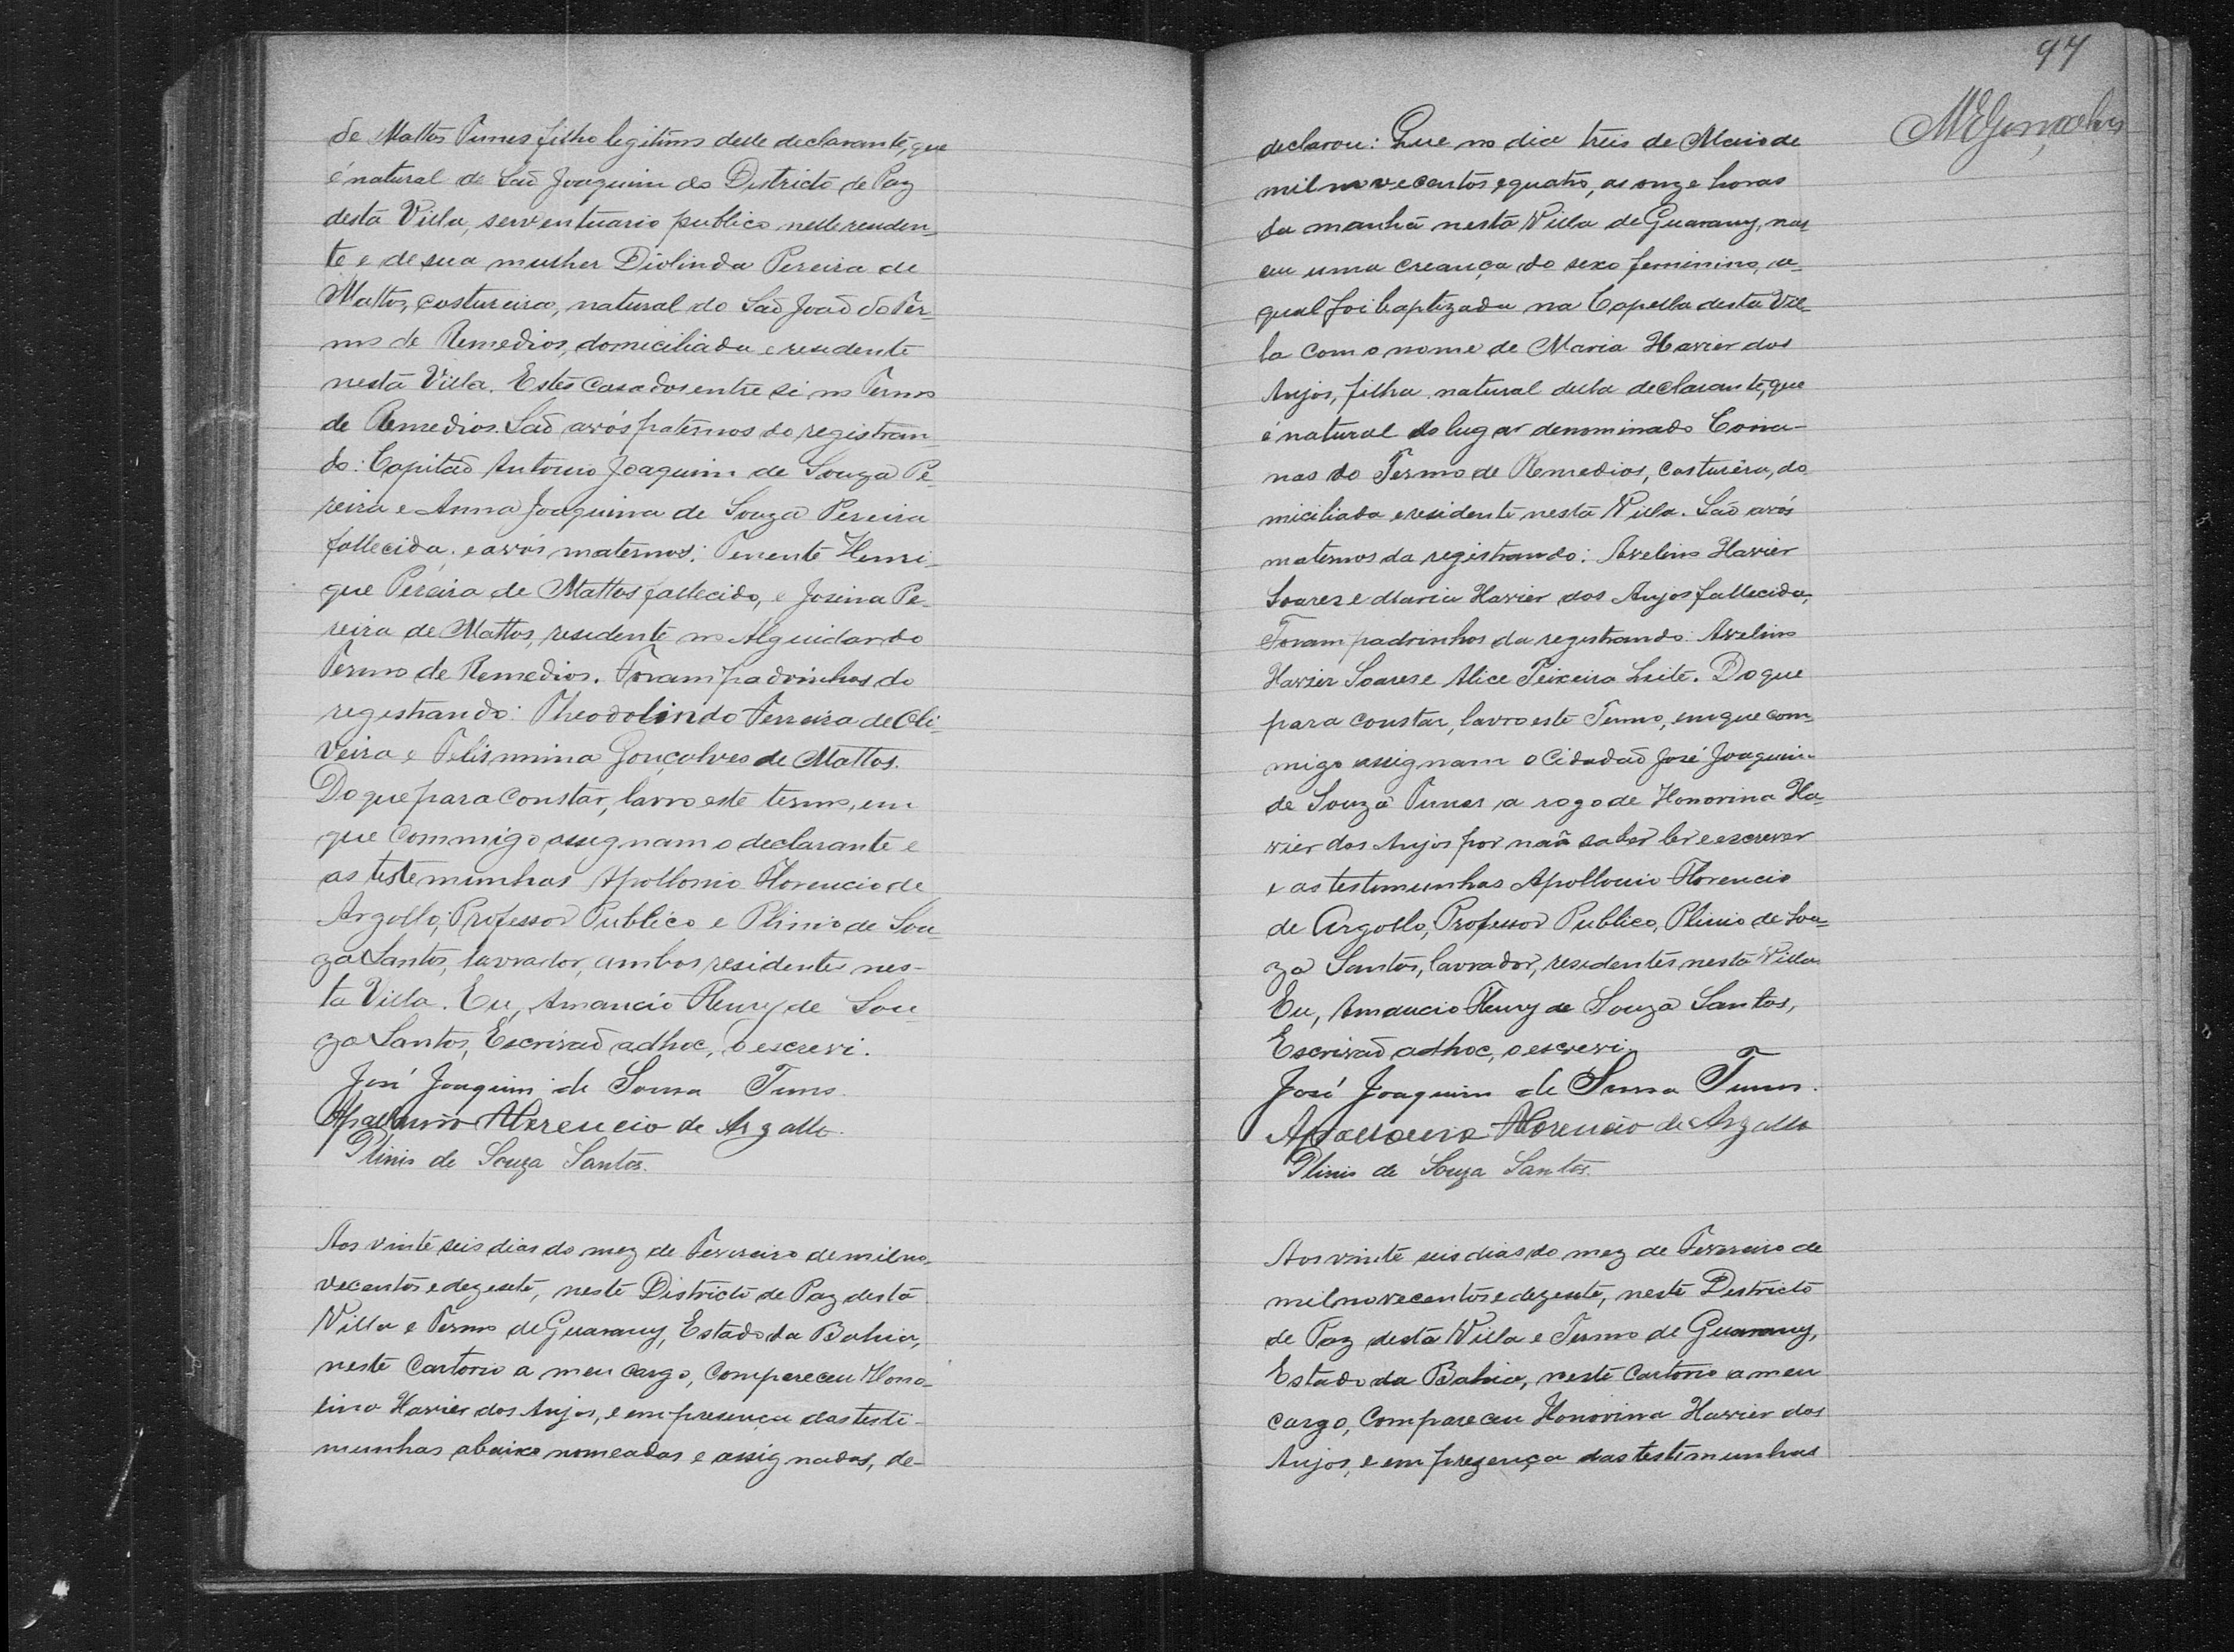 de Mattos Tunes filho legitimo delle declarante, que
é natural de São Joaquim do Districto de Paz
desta Villa, serventuario publico nelle residen-
te e de sua mulher Diolinda Pereira de
Mattos, costureira, natural do São João do Ter-
mo de Remedios, domiciliada e residente
nesta Villa. Estes casados entre si no Termo
de Remedios. São avós paternos do registran
do: Capitão Antonio Joaquim de Souza Pe-
reira e Anna Joaquina de Souza Pereira
fallecida, e avós maternos: Tenente Henri-
que Pereira de Mattos fallecido, e Josina Pe-
reira de Mattos, residente no Alguidar do
Termo de Remedios. Foram padrinhos do
registrando: Theodolindo Ferreira de Oli-
veira e Felismina Gonçalves de Mattos.
Do que para constar, lavro este termo, em
que commigo assignam o declarante e
as testemunhas Apollonio Florencio de
Argollo, Professor Publico e Plinio de Sou-
za Santos, lavrador, ambos residentes nes-
ta Villa. Eu, Amancio Fleury de Sou-
za Santos, Escrivão adhoc, o escrevi.
José Joaquim de Sousa Tunes.
Apollonio Florencio de Argollo.
Plinio de Souza Santos.
Aos vinte seis dias do mez de Fevereiro de mil no-
vecentos e dezesete, neste Districto de Paz desta
Villa e Termo de Guarany, Estado da Bahia,
neste Cartorio a meu cargo, compareceu Hono-
rina Xavier dos Anjos, e em presença das teste-
munhas abaixo nomeadas e assignadas, de-
97
MEGonçalves
declarou: Que no dia treis de Maio de
mil novecentos e quatro, as onze horas
da manhã nesta Villa de Guarany, nas-
ceu uma creança do sexo feminino, a-
qual foi baptizada na Capella desta Vil-
la com o nome de Maria Xavier dos
Anjos, filha natural della declarante, que
é natural do lugar denominado
nas do Termo de Remedios, costureira, do
miciliada e residente nesta Villa. São avós
maternos da registrando: Avelino Xavier
Soares e Maria Xavier dos Anjos fallecida.
Foram padrinhos da registrando: Avelino
Xavier Soares e Alice Teixeira Leite. Do que
para constar, lavro este Termo, em que com
migo assignam o Cidadão José Joaquim
de Souza Tunes, a rogo de Honorina Xa-
vier dos Anjos por não saber ler e escrever
e as testemunhas Apollonio Florencio
de Argollo, Professor Publico, Plinio de Sou-
za Santos, lavrador, residentes nesta Villa.
Eu, Amancio Fleury de Souza Santos,
Escrivão adhoc, o escrevi.
José Joaquim de Sousa Tunes.
Apollonio Florencio de Argollo
Plinio de Souza Santos.
Aos vinte seis dias do mez de Fevereiro de
mil novecentos e dezesete, neste Districto
de Paz desta Villa e Termo de Guarany,
Estado da Bahia, neste Cartorio a meu
cargo, compareceu Honorina Xavier dos
Anjos, e em presença das testemunhas